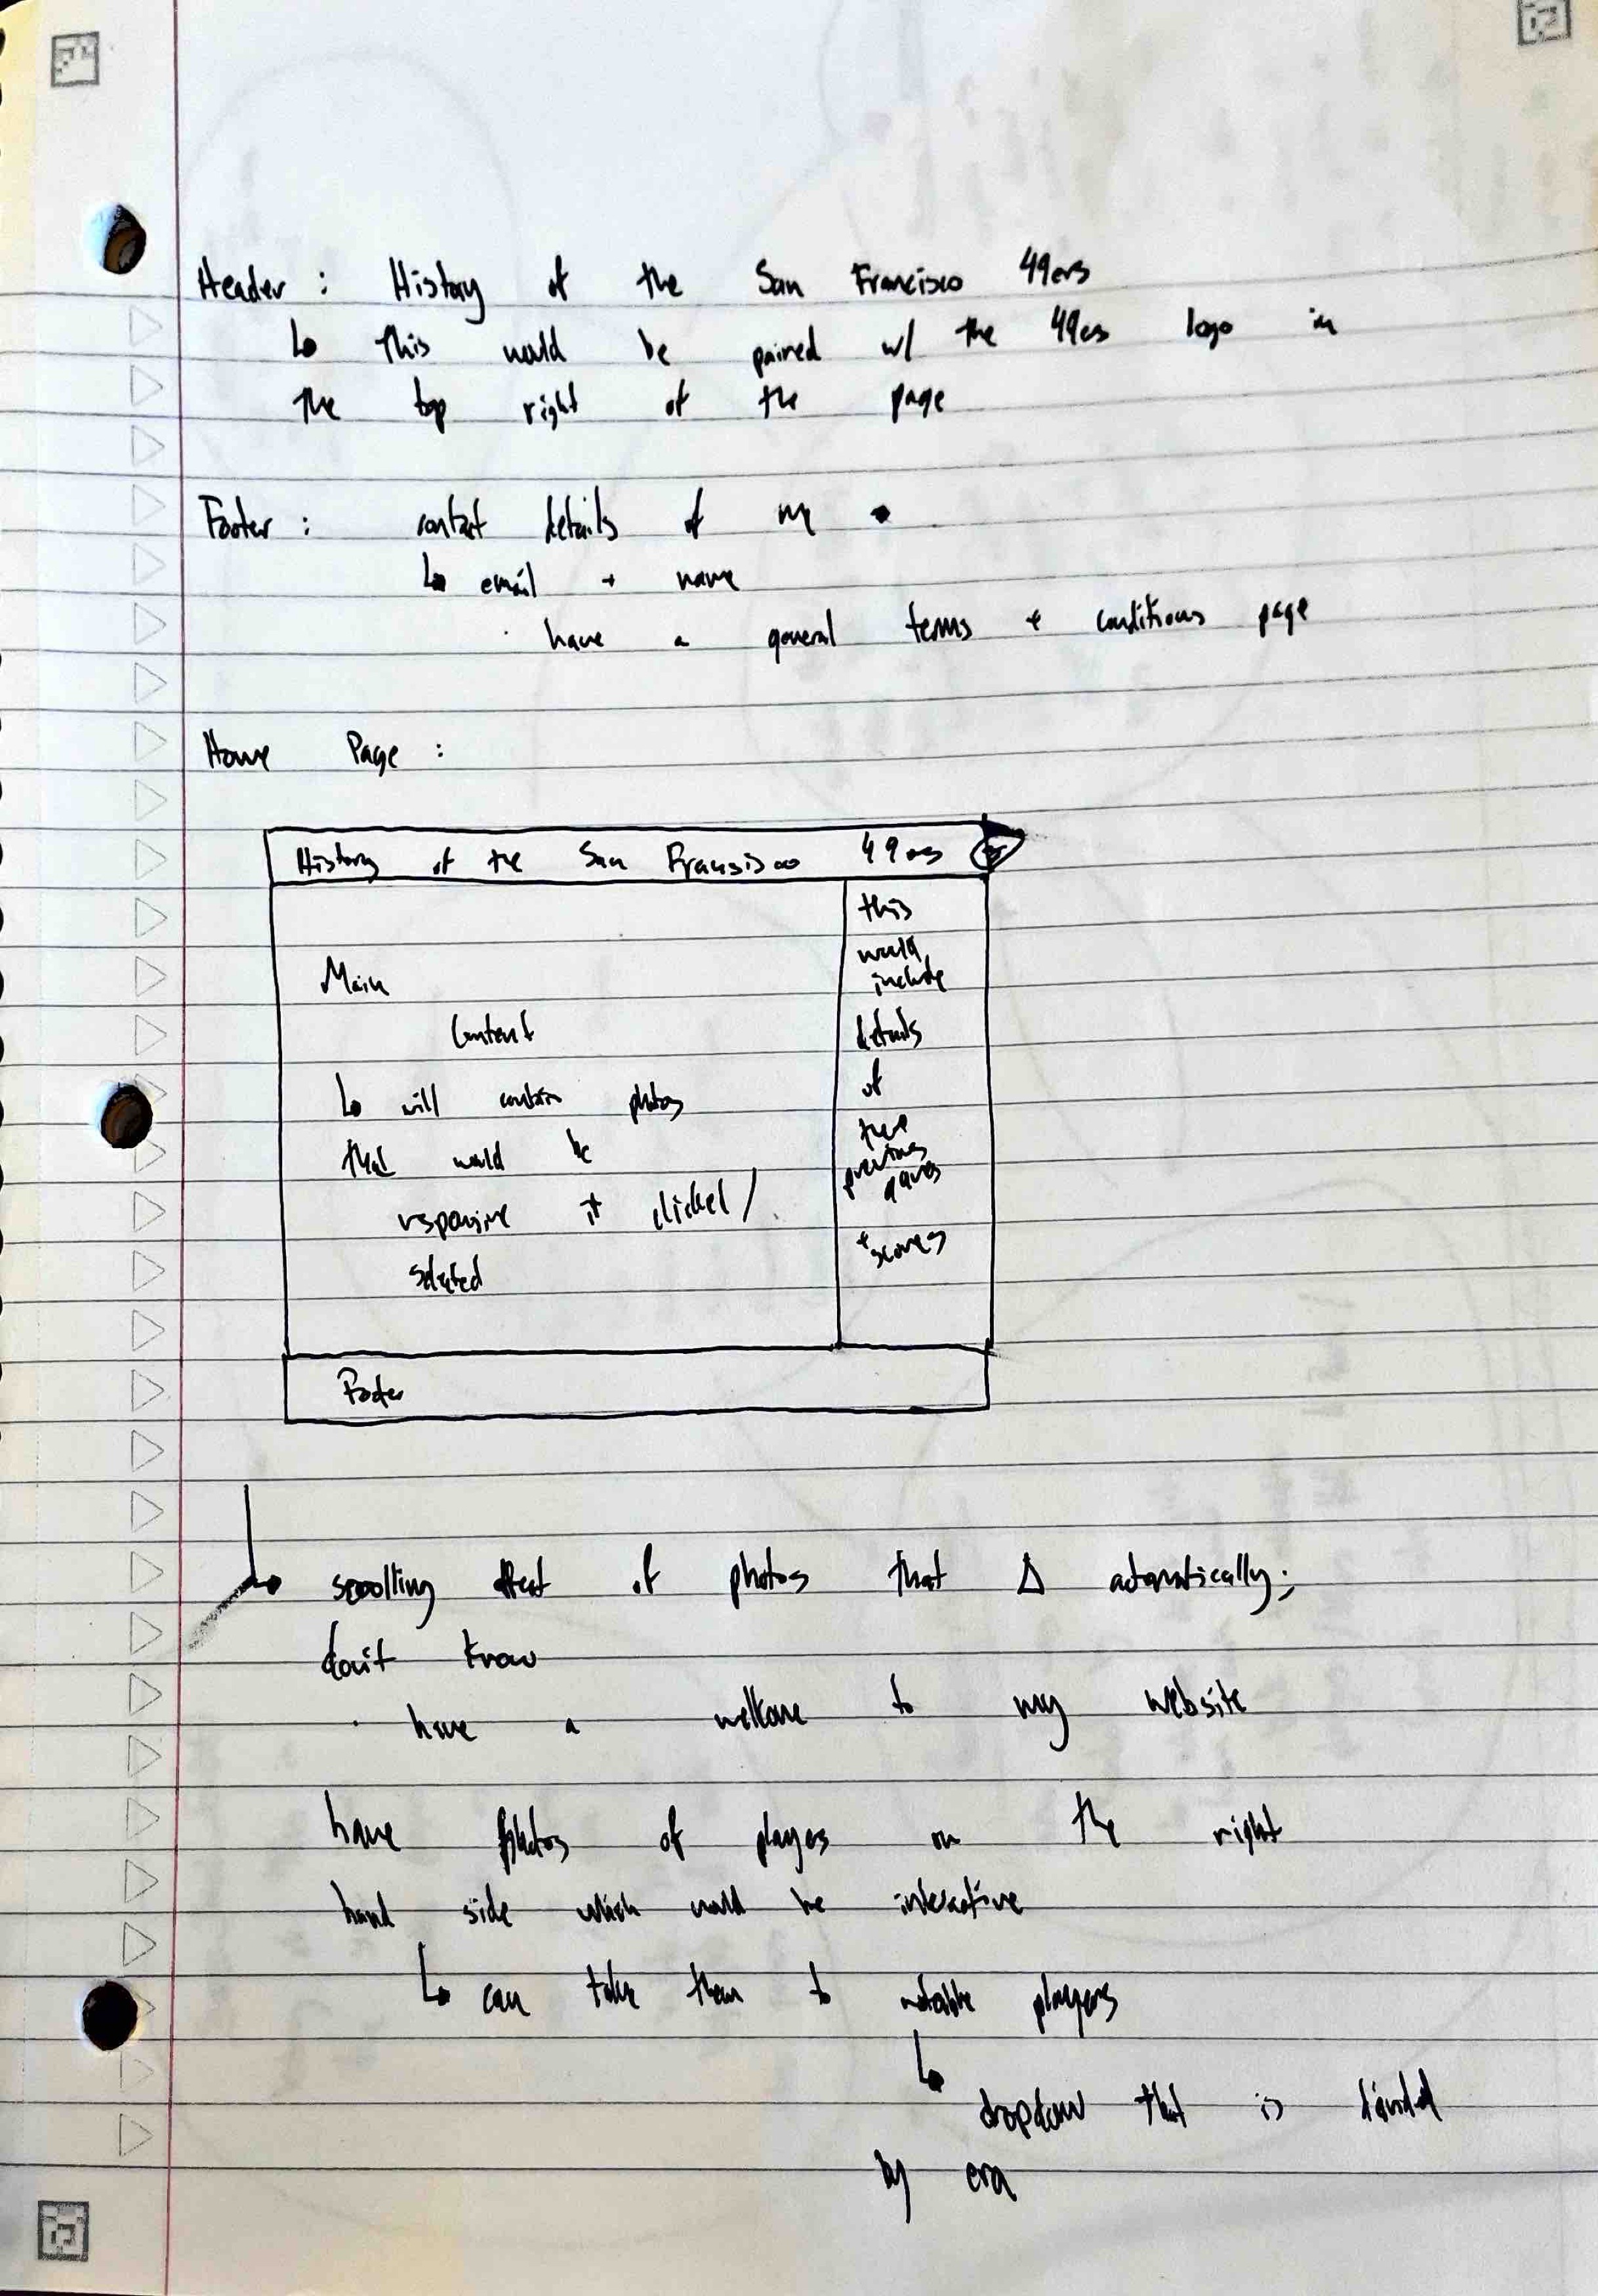 Header : History of the San Francisco 49ers
↳ this would be paired w/ the 49ers logo in
the top right of the page
Footer : contact details of me
↳ email + name
· have a general terms + conditions page
Home Page :
History of the San Fransisco 49ers
Main
Content
↳ will contain photos
that would be
responsive if clicked/
selected
this
would
include
details
of
previous
games
+ scores
Footer
↳ scrolling effect of photos that Δ automatically;
don't know
· have a welcome to my website
have photos of players on the right
hand side which would be interactive
↳ can take them to notable players
↳ dropdown that is divided
by era